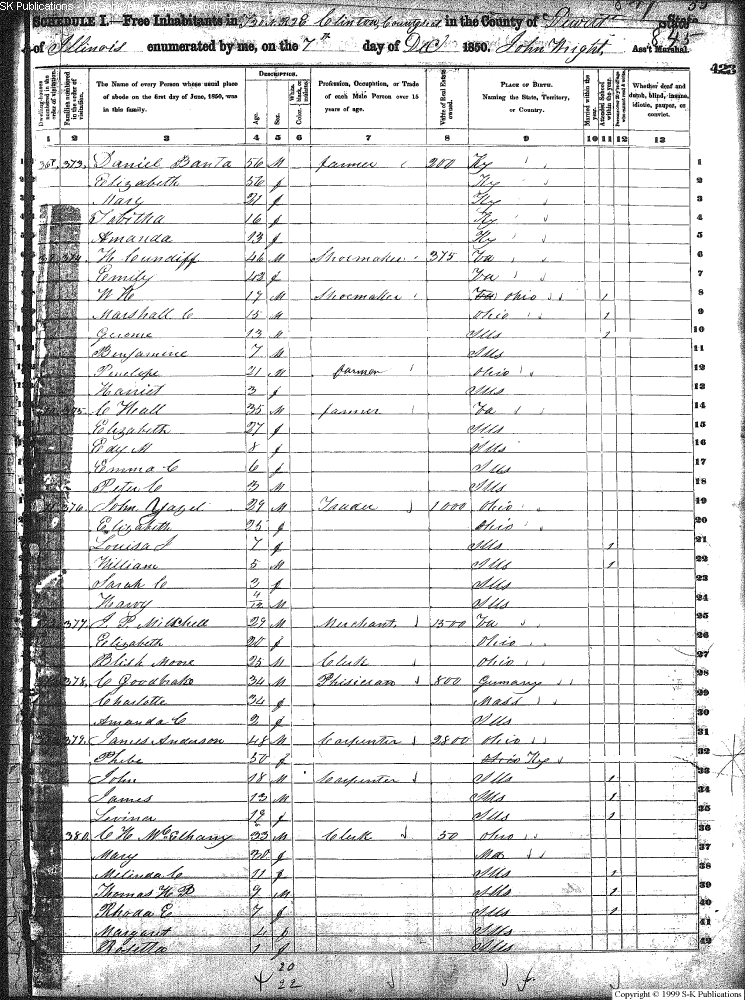 SK Publications
SCHEDULE I.—Free Inhabitants in Clinton in the County of Dewitt State
of Illinois enumerated by me, on the 7th day of Dec 1850. John Wright, Ass't Marshal.
423
Dwelling-houses numbered in the order of visitation.
Families numbered in the order of visitation.
The Name of every Person whose usual place of abode on the first day of June, 1850, was in this family.
DESCRIPTION.
Age.
Sex.
Color. White, black, or mulatto.
Profession, Occupation, or Trade of each Male Person over 15 years of age.
Value of Real Estate owned.
PLACE OF BIRTH. Naming the State, Territory, or Country.
Married within the year.
Attended School within the year.
Whether deaf and dumb, blind, insane, idiotic, pauper, or convict.
1 2 3 4 5 6 7 8 9 10 11 12 13
367 373 Daniel Banta 56 M farmer 200 Ky 1
Elizabeth 56 f Ky 2
Mary 21 f Ky 3
Tabitha 16 f Ky 4
Amanda 13 f Ky 5
374 H Cundiff 46 M Shoemaker 375 Va 6
Emily 42 f Va 7
W H 19 M Shoemaker Ohio 1 8
Marshall C 15 M Ohio 1 9
Gerome 13 M Ills 1 10
Benjamine 7 M Ills 11
Penelope 21 M farmer Ohio 12
Harriet 3 f Ills 13
375 C Hall 35 M farmer Va 14
Elizabeth 27 f Ills 15
Edy M 8 f Ills 16
Emma C 6 f Ills 17
Peter C 3 M Ills 18
376 John Yazel 29 M Trader 1000 Ohio 19
Elizabeth 25 f Ohio 20
Louisa J 7 f Ills 1 21
William 5 M Ills 1 22
Sarah C 3 f Ills 23
Harvy 11/12 M Ills 24
377 J P Mitchell 29 M Merchant 1500 Va 25
Elizabeth 20 f Ohio 26
Blish Moore 25 M Clerk Ohio 27
378 C Goodbrake 34 M Phisician 800 Gumany 28
Charlotte 34 f Mass 29
Amanda C 2 f Ills 30
379 James Anderson 48 M Carpenter 2800 Ohio 31
Phebe 50 f Ohio Ky 32
John 18 M Carpenter Ills 1 33
James 13 M Ills 1 34
Levina 12 f Ills 1 35
380 C H McElhany 33 M Clerk 50 Ohio 36
Mary 30 f 37
Melinda C 11 f Ills 1 38
Thomas H P 9 M Ills 1 39
Rhoda E 7 f Ills 1 40
Margaret 4 f Ills 41
Rosetta 1 f Ills 42
20
22
Copyright © 1999 S-K Publications